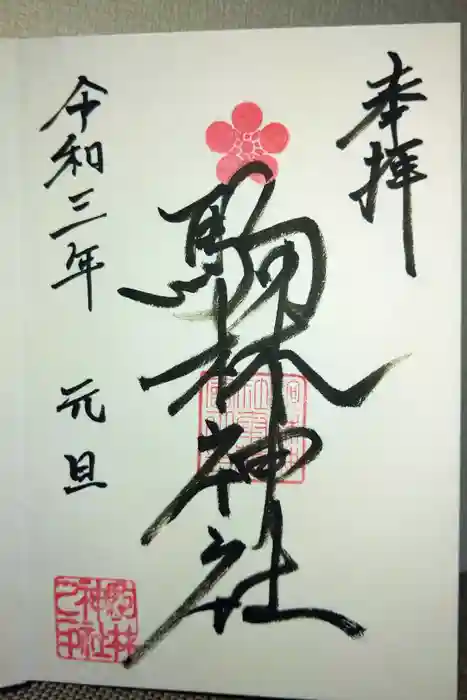 奉拝
駒林神社
令和三年 元旦
駒林神社之印